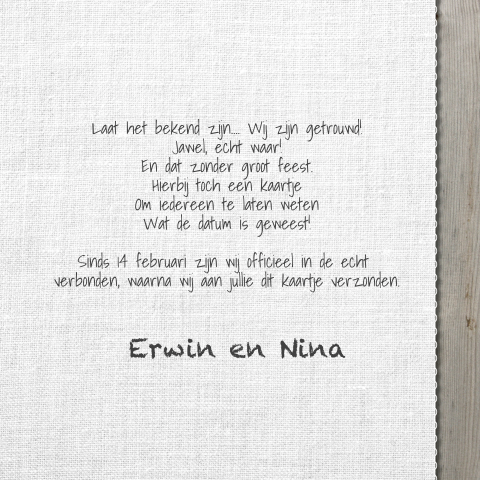 Laat het bekend zijn.... Wij zijn getrouwd!
Jawel, echt waar!
En dat zonder groot feest.
Hierbij toch een kaartje
Om iedereen te laten weten
Wat de datum is geweest!
Sinds 14 februari zijn wij officieel in de echt
verbonden, waarna wij aan jullie dit kaartje verzonden.
Erwin en Nina